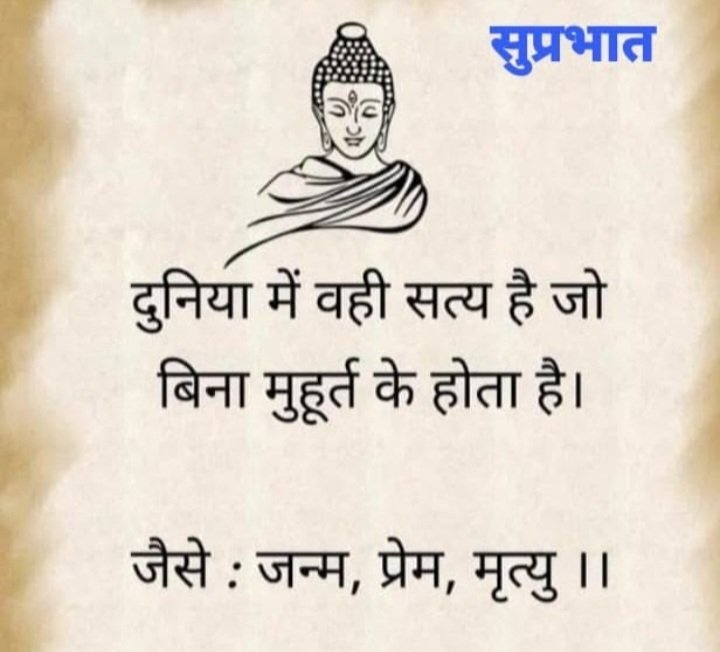 सुप्रभात
दुनिया में वही सत्य है जो
बिना मुहूर्त के होता है।
जैसे : जन्म, प्रेम, मृत्यु ।।